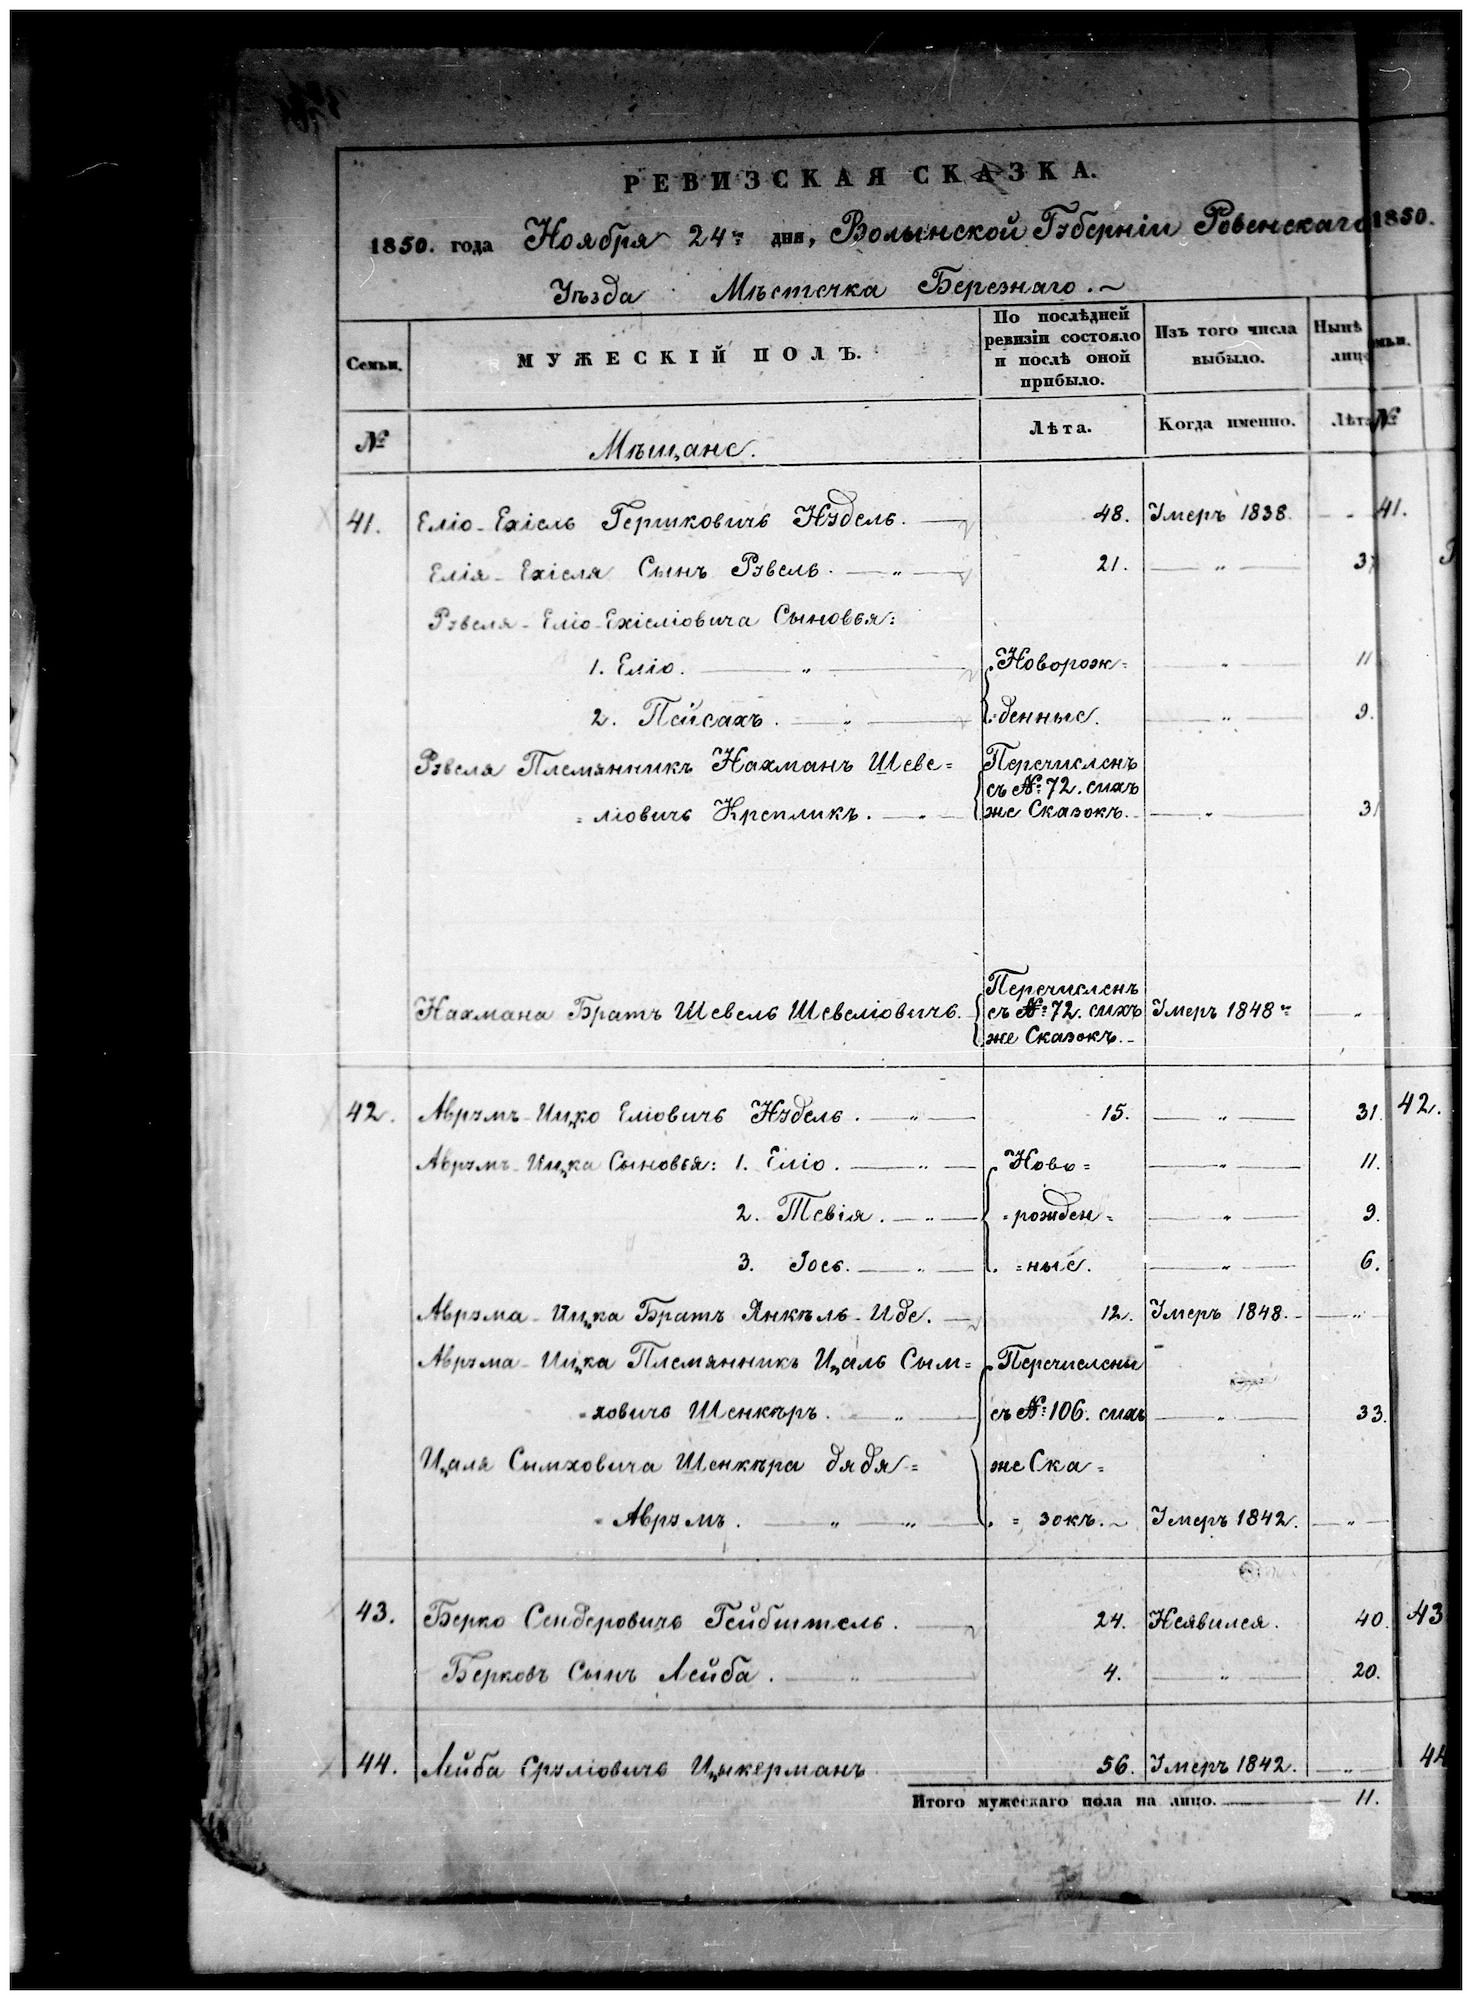 РЕВИЗСКАЯ СКАЗКА.
1850. года Ноября 24го дня, Волынской Губерніи Ровенскаго 1850.
Уѣзда Мѣстечка Березнаго.
Семьи. МУЖЕСКІЙ ПОЛЪ. По послѣдней ревизіи состояло и послѣ оной прибыло. Изъ того числа выбыло. Нынѣ лицо
№ Мѣщане. Лѣта. Когда именно. Лѣта №
41. Еліо-Ехіель Гершковичъ Нудель. 48. Умеръ 1838. 41.
Елія-Ехіеля Сынъ Рувель. 21. " 37
Рувеля-Еліо-Ехіеліовича Сыновья:
1. Еліо. " Новорож= " 11
2. Пейсахъ. " =денные. " 9.
Рувеля Племянникъ Нахманъ Шеве= Перечисленъ
съ №72. сихъ
=ліовичъ Крепликъ. " же Сказокъ. " 31
Перечисленъ
Нахмана Братъ Шевель Шевеліовичъ. съ №72. сихъ Умеръ 1848го "
же Сказокъ.
42. Аврумъ-Ицко Еліовичъ Нудель. " 15. " 31. 42.
Аврумъ-Ицка Сыновья: 1. Еліо. " Ново= " 11.
2. Тевія. " =рожден= " 9.
3. Іось. " =ные. " 6.
Аврума-Ицка Братъ Янкѣль-Иде. 12. Умеръ 1848. "
Аврума-Ицка Племянникъ Цаль Сым= Перечислены
=ховичъ Шенкѣръ. " съ №106. сихъ " 33.
Цаля Сымховича Шенкѣра дядя= же Ска=
=Аврумъ. " " =зокъ. Умеръ 1842. "
43. Берко Сендеровичъ Гейбштель. 24. Неявился. 40. 43
Берковъ Сынъ Лейба. " 4. " 20.
44. Лейба Сруліовичъ Цукерманъ 56. Умеръ 1842. " 44
Итого мужескаго пола на лицо. 11.